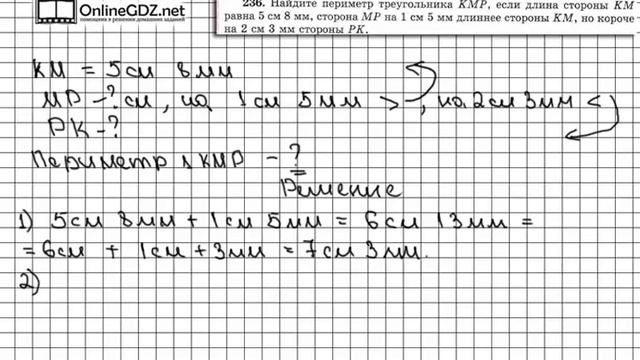 OnlineGDZ.net
помощник в решении домашних заданий
236. Найдите периметр треугольника KMP, если длина стороны KM
равна 5 см 8 мм, сторона MP на 1 см 5 мм длиннее стороны KM, но короче
на 2 см 3 мм стороны PK.
KM = 5 см 8 мм
MP - ? см, на 1 см 5 мм >, на 2 см 3 мм <
PK - ?
Периметр Δ KMP - ?
Решение
1) 5 см 8 мм + 1 см 5 мм = 6 см 13 мм =
= 6 см + 1 см + 3 мм = 7 см 3 мм.
2)